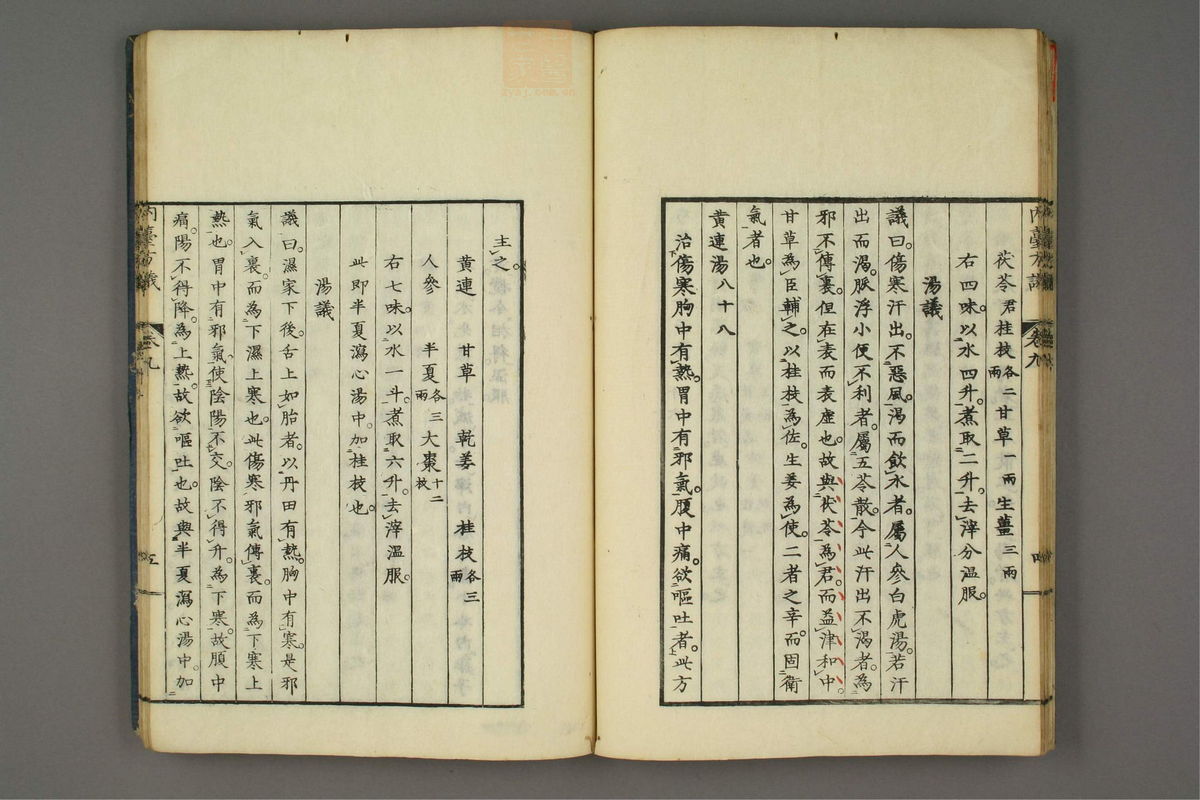 茯苓君桂枝各二兩甘草一兩生薑三兩
右四味。以水四升。煮取二升。去滓分温服。
湯議
議曰。傷寒汗出。不惡風。渴而飲水者。屬人參白虎湯。若汗
出而渴。脉浮小便不利者。屬五苓散。今此汗出不渴者。為
邪不傳裏。但在表而表虚也。故與茯苓為君。而益津和中。
甘草為臣輔之。以桂枝為佐。生姜為使。二者之辛。而固衛
氣者也。
黄連湯八十八
治傷寒胸中有熱。胃中有邪氣。腹中痛。欲嘔吐者。此方
主之。
黄連 甘草 乾姜 桂枝各三兩
人參 半夏各三兩 大棗十二枚
右七味。以水一斗。煮取六升。去滓温服。
此即半夏瀉心湯中。加桂枝也。
湯議
議曰。濕家下後。舌上如胎者。以丹田有熱。胸中有寒。是邪
氣入裏。而為下濕上寒也。此傷寒邪氣傳裏。而為下寒上
熱也。胃中有邪氣。使陰陽不交。陰不得升。為下寒。故腹中
痛。陽不得降。為上熱。故欲嘔吐也。故與半夏瀉心湯中。加
卷九
五